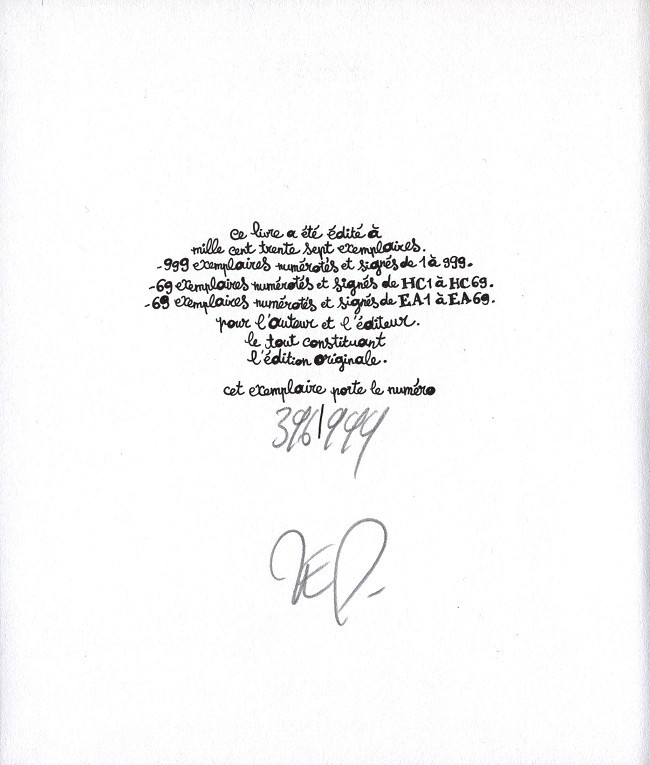 ce livre a été édité à
mille cent trente sept exemplaires.
-999 exemplaires numérotés et signés de 1 à 999.
-69 exemplaires numérotés et signés de HC1 à HC69.
-69 exemplaires numérotés et signés de EA1 à EA69.
pour l'auteur et l'éditeur.
le tout constituant
l'édition originale.
cet exemplaire porte le numéro
396/999